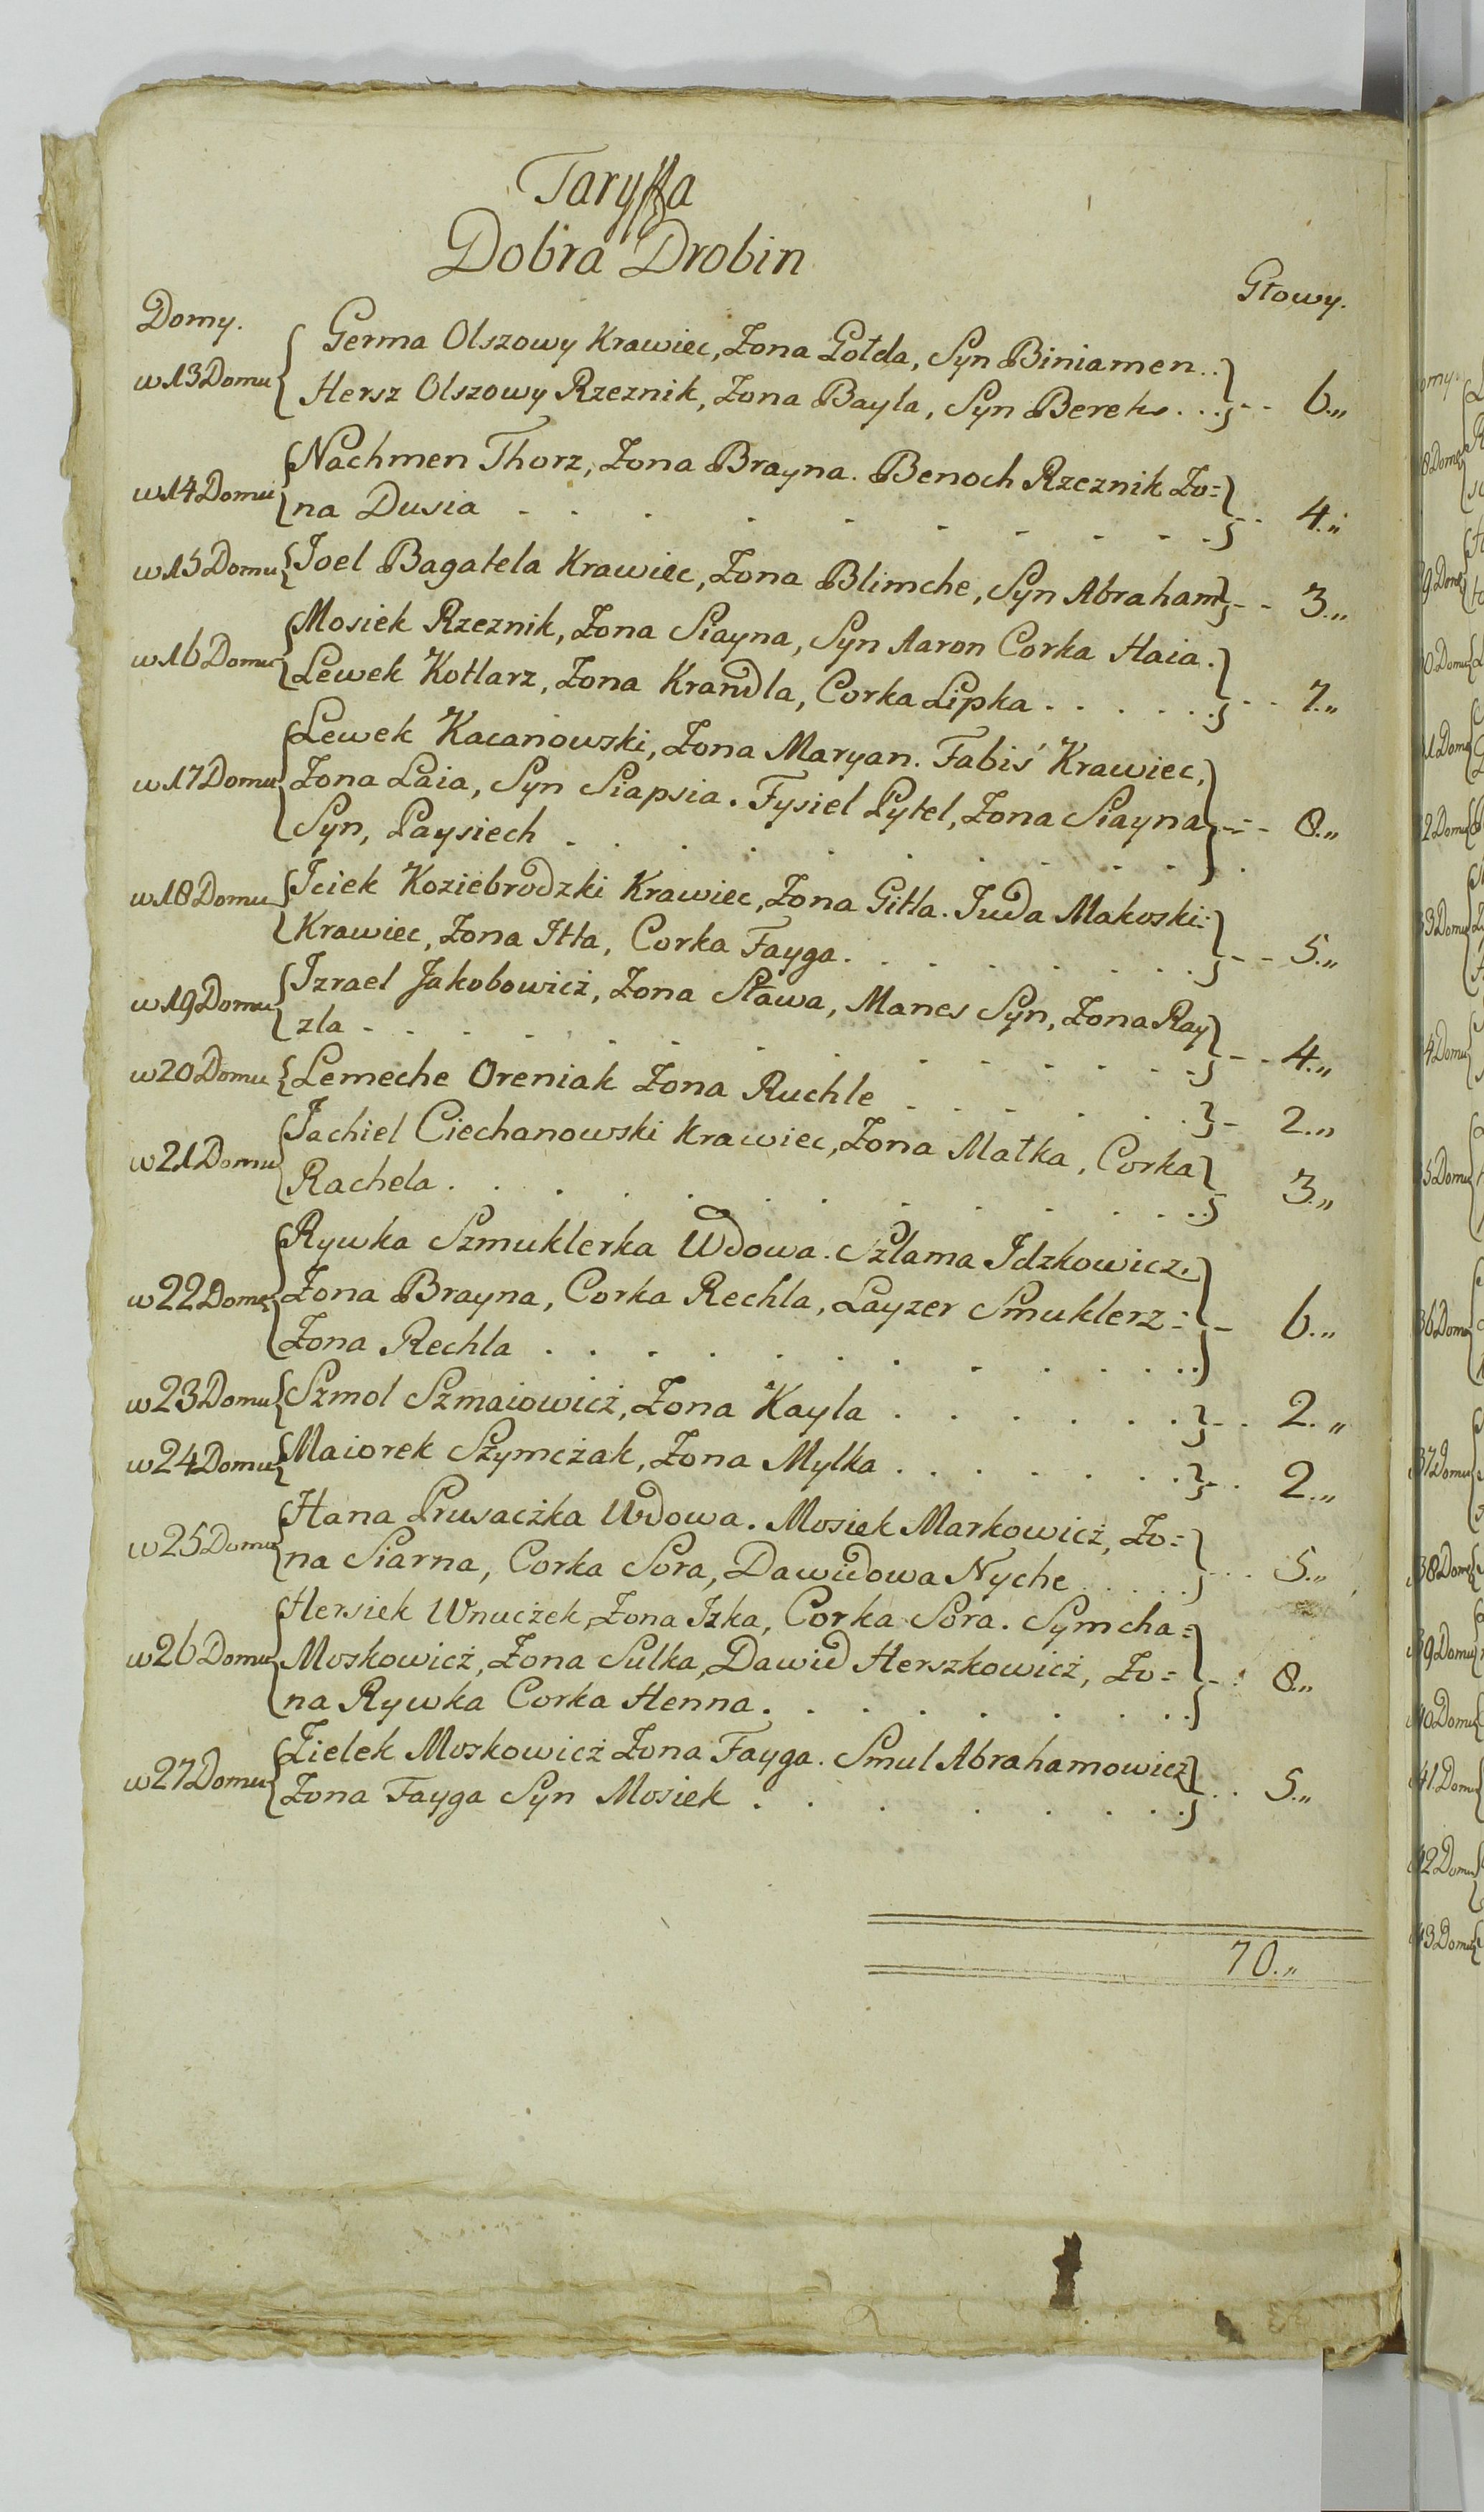 Taryffa
Dobra Drobin
Domy. Głowy.
w 13 Domu Germa Olszowy Krawiec, Zona Gołda, Syn Biniamen..
Hersz Olszowy Rzeznik, Zona Bayla, Syn Berek... -- 6.,,
w 14 Domu Nachmen Thorz, Zona Brayna. Benoch Rzeznik Zo=
na Dusia - - - - - - - - - 4.,,
w 15 Domu Joel Bagatela Krawiec, Zona Blimche, Syn Abraham -- 3.,,
w 16 Domu Mosiek Rzeznik, Zona Siayna, Syn Aaron Corka Haia.
Lewek Kotlarz, Zona Krandla, Corka Lipka . . . . . . -- 7.,,
w 17 Domu Lewek Kacanowski, Zona Maryan. Fabiś Krawiec,
Zona Laia, Syn Siapsia. Fysiel Pytel, Zona Siayna
Syn, Paysiech . . . . . . . . . --- 8.,,
w 18 Domu Jciek Koziebrodzki Krawiec, Zona Gitla. Juda Makoski:
Krawiec, Zona Itta, Corka Fayga. . . . . . . . -- 5.,,
w 19 Domu Izrael Jakobowicz, Zona Sława, Manes Syn, Zona Ray
zla - - - - - - - - - - -- 4.,,
w 20 Domu Lemeche Oreniak Zona Ruchle - - - - - - 2.,,
w 21 Domu Jachiel Ciechanowski Krawiec, Zona Małka, Corka
Rachela . . . . . . . . . . . 3.,,
w 22 Domu Rywka Szmuklerka Wdowa. Szlama Jdzkowicz.
Zona Brayna, Corka Rechla, Layzer Smuklerz -
Zona Rechla . . . . . . . . . . . - 6.,,
w 23 Domu Szmol Szmaiowicz, Zona Kayla . . . . . . -- 2.,,
w 24 Domu Maiorek Szymczak, Zona Mylka . . . . . . . -- 2.,,
w 25 Domu Hana Prusaczka Wdowa. Mosiek Markowicz, Zo=
na Siarna, Corka Sora, Dawidowa Nyche ..... --- 5.,,
w 26 Domu Hersiek Wnuczek, Zona Jzka, Corka Sora. Symcha=
Moskowicz, Zona Sulka, Dawid Herszkowicz, Zo=
na Rywka Corka Henna. . . . . . . . . -- 8.,,
w 27 Domu Zielek Moskowicz Zona Fayga. Smul Abrahamowicz
Zona Fayga Syn Mosiek . . . . . . . . -- 5.,,
70.,,